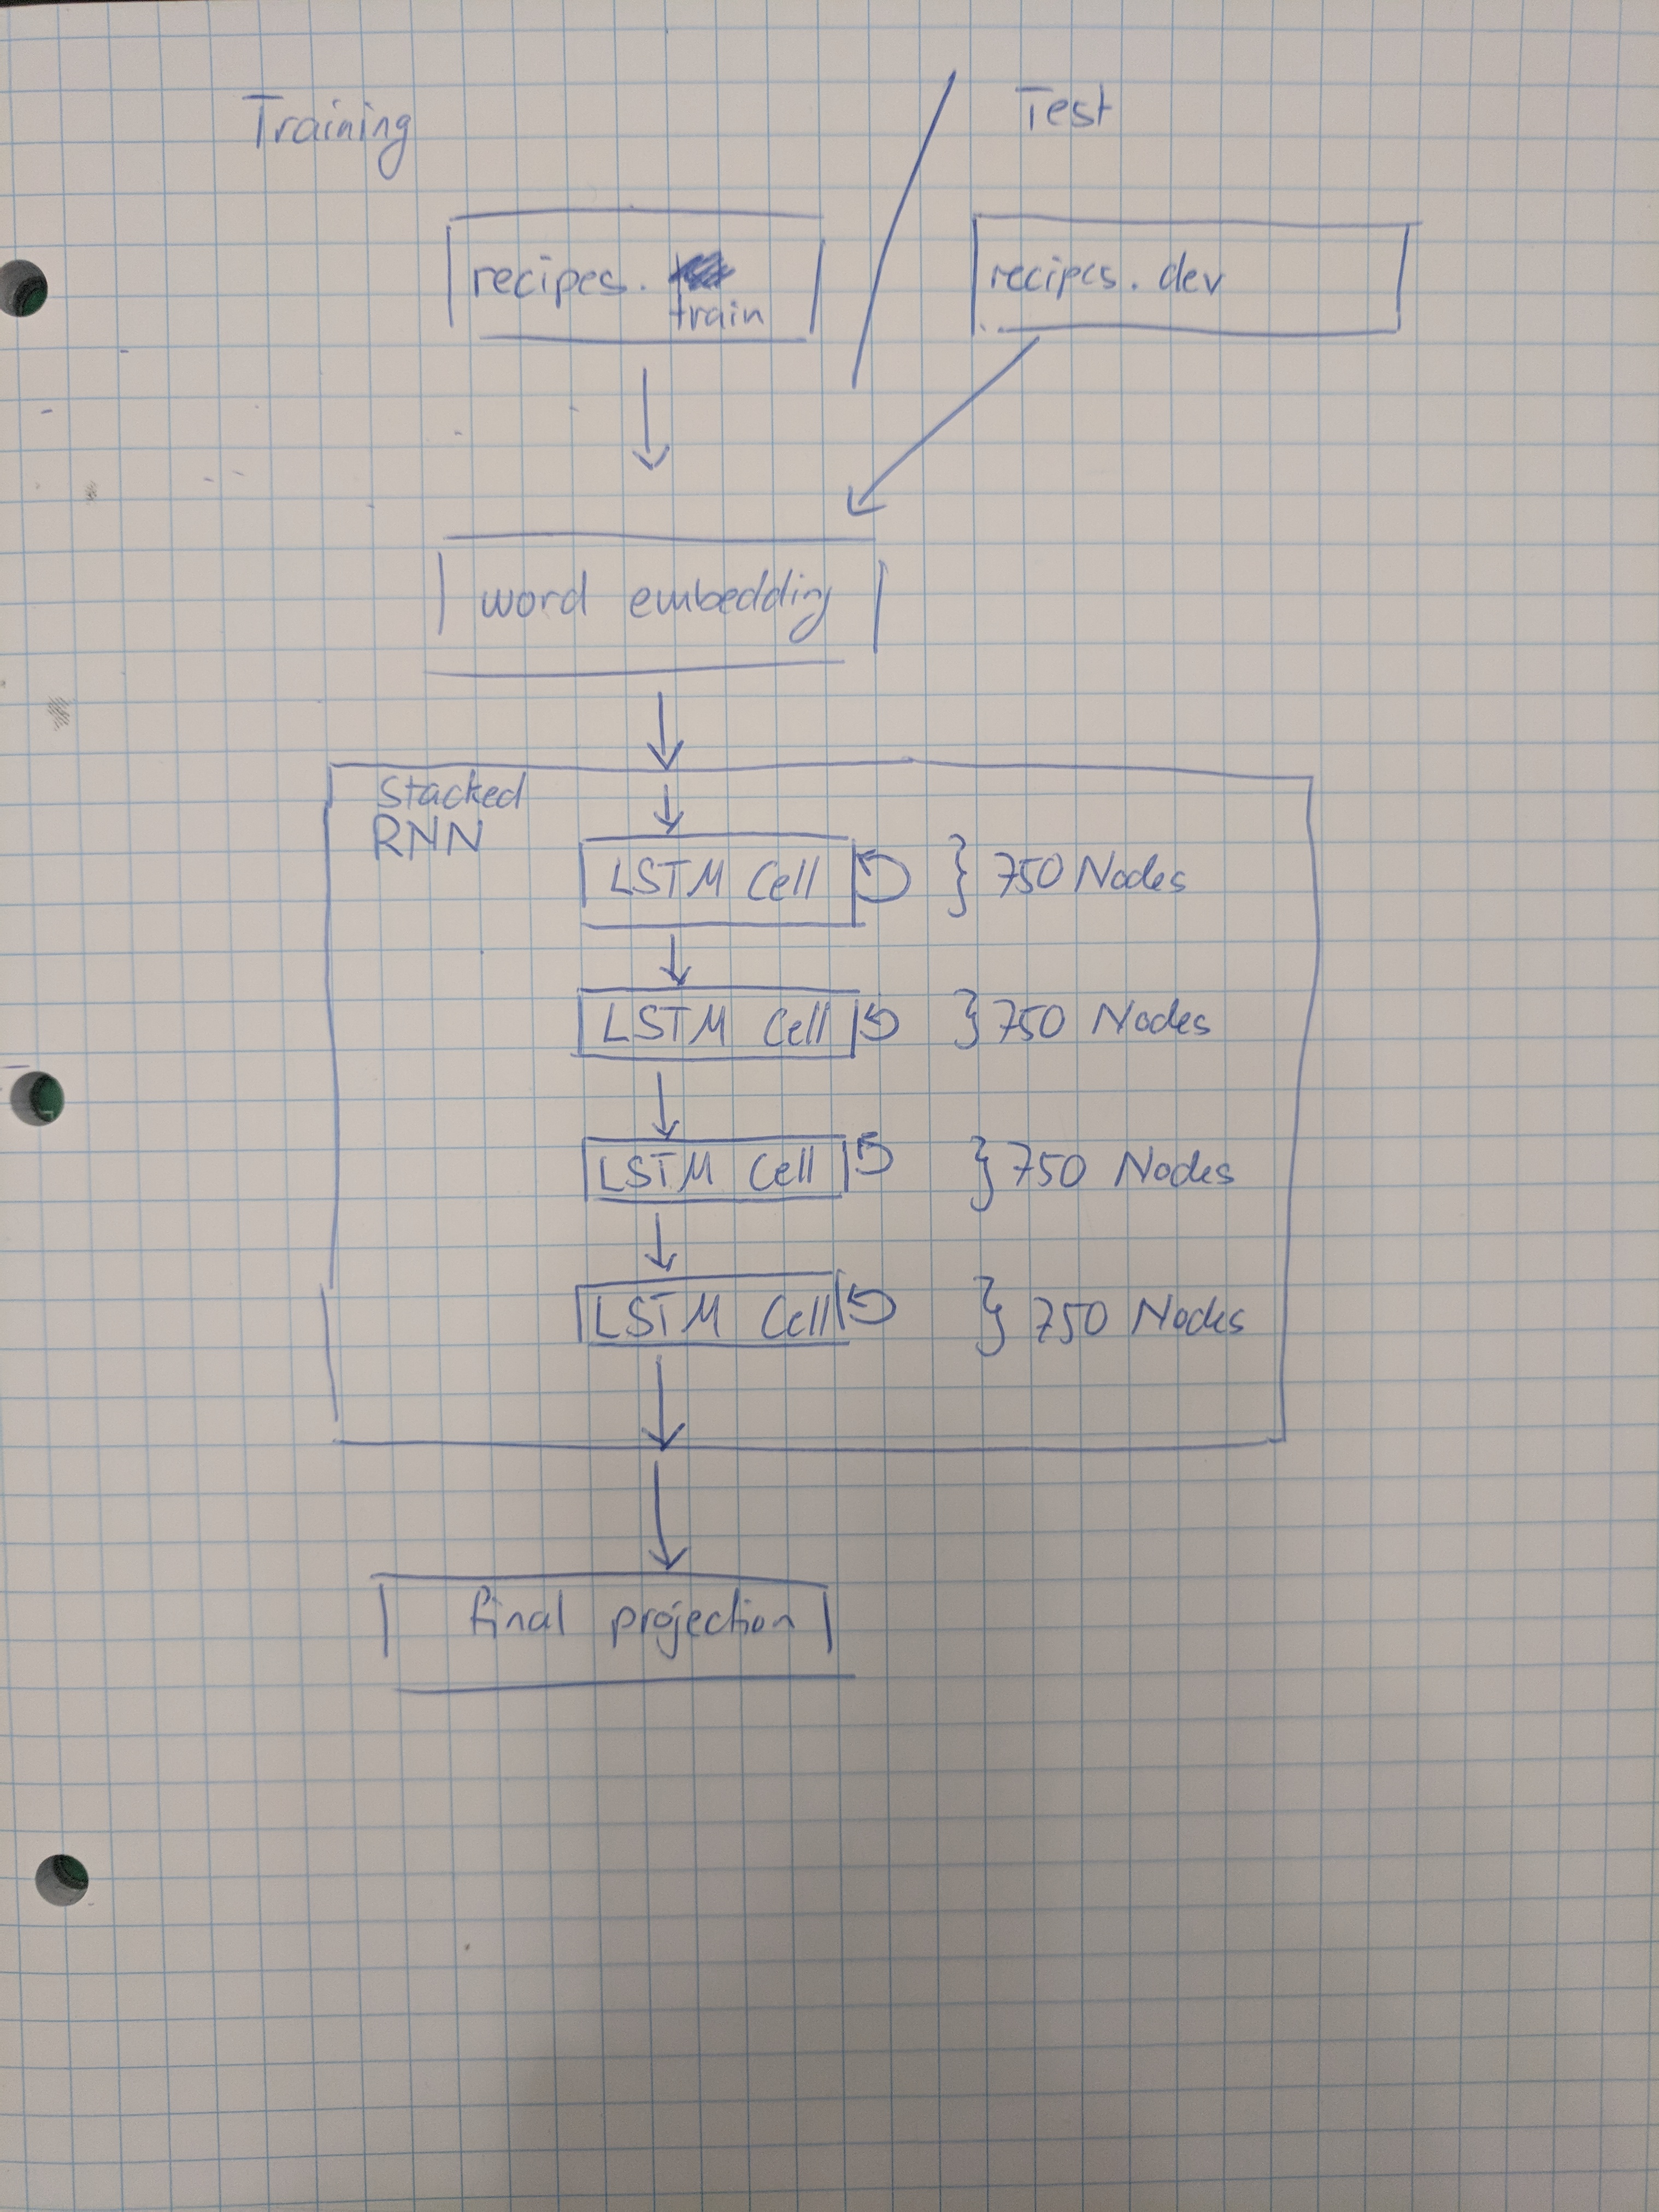 Training
Test
recipes.
train
recipes. dev
word embedding
Stacked
RNN
LSTM Cell } 750 Nodes
LSTM Cell } 750 Nodes
LSTM Cell } 750 Nodes
LSTM Cell } 750 Nodes
final projection